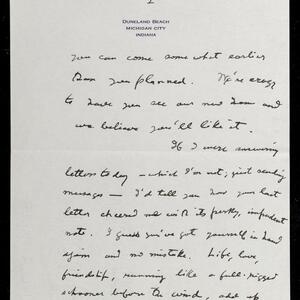 DUNELAND BEACH
MICHIGAN CITY
INDIANA
you can come some what earlier
than you planned. We're crazy
to have you see our new house and
we believe you'll like it.
If I were answering
letters today — which I'm not; just sending
messages — I'd tell you how your last
letter cheered me with its peaky, impudent
note. I guess you've got yourself in hand
again and no mistake. Life, love,
friendship, running like a full-rigged
schooner before the wind, and